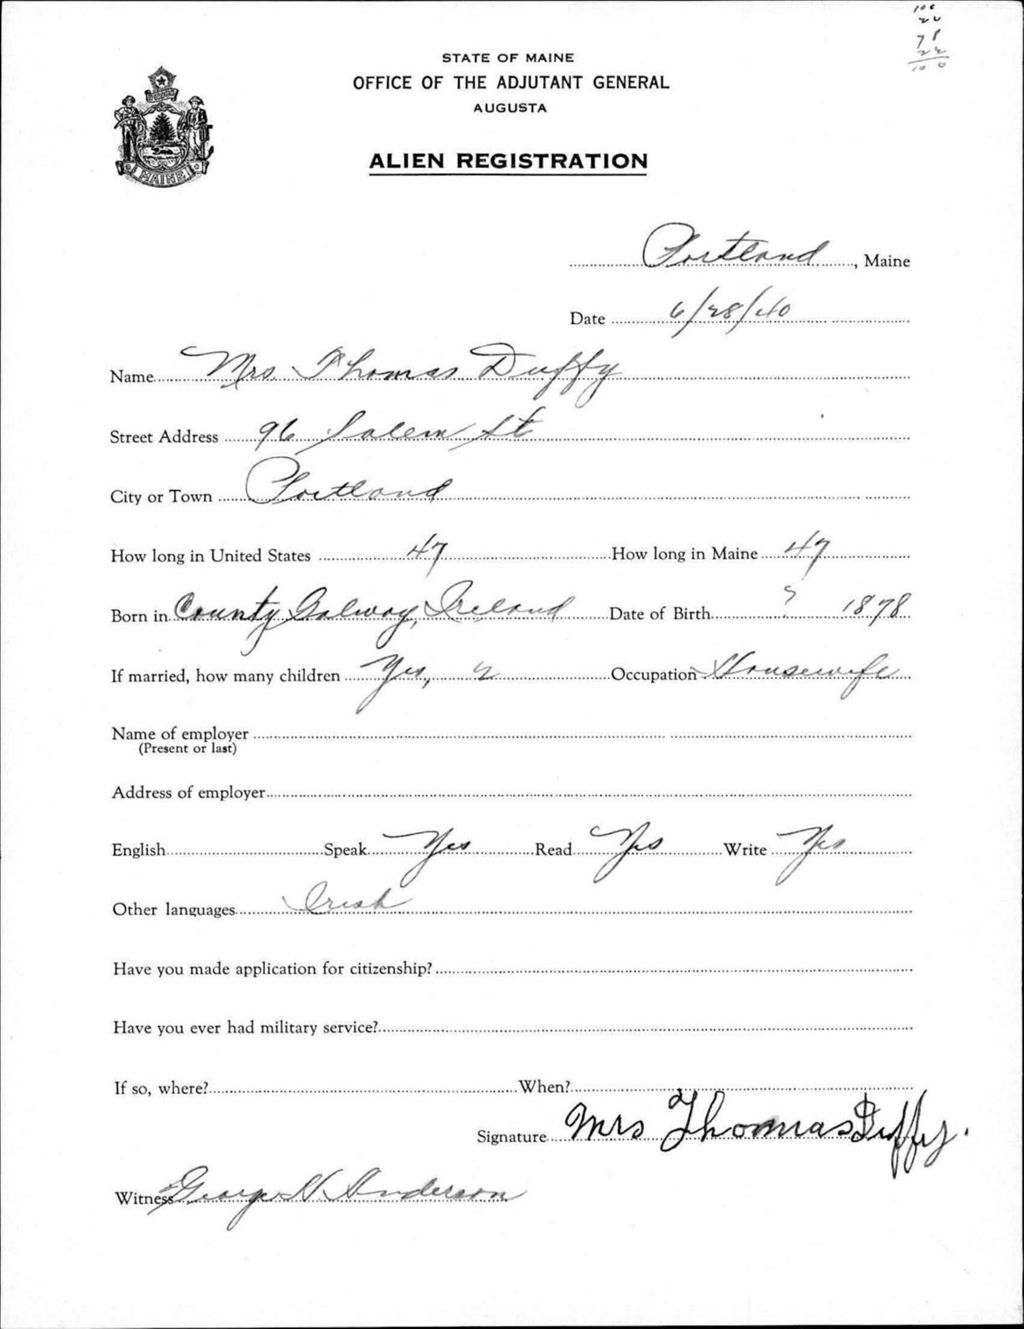 100
22
78
22
100
STATE OF MAINE
OFFICE OF THE ADJUTANT GENERAL
AUGUSTA
MAINE
ALIEN REGISTRATION
Portland, Maine
Date 6/28/40
Name Mrs. Thomas Duffy
Street Address 96 Salem St
City or Town Portland
How long in United States 47 How long in Maine 47
Born in County Galway, Ireland Date of Birth ? 1878
If married, how many children Yes, 2 Occupation Housewife
Name of employer
(Present or last)
Address of employer
English Speak Yes Read Yes Write Yes
Other languages Irish
Have you made application for citizenship?
Have you ever had military service?
If so, where? When?
Signature Mrs Thomas Duffy.
Witness George N Anderson